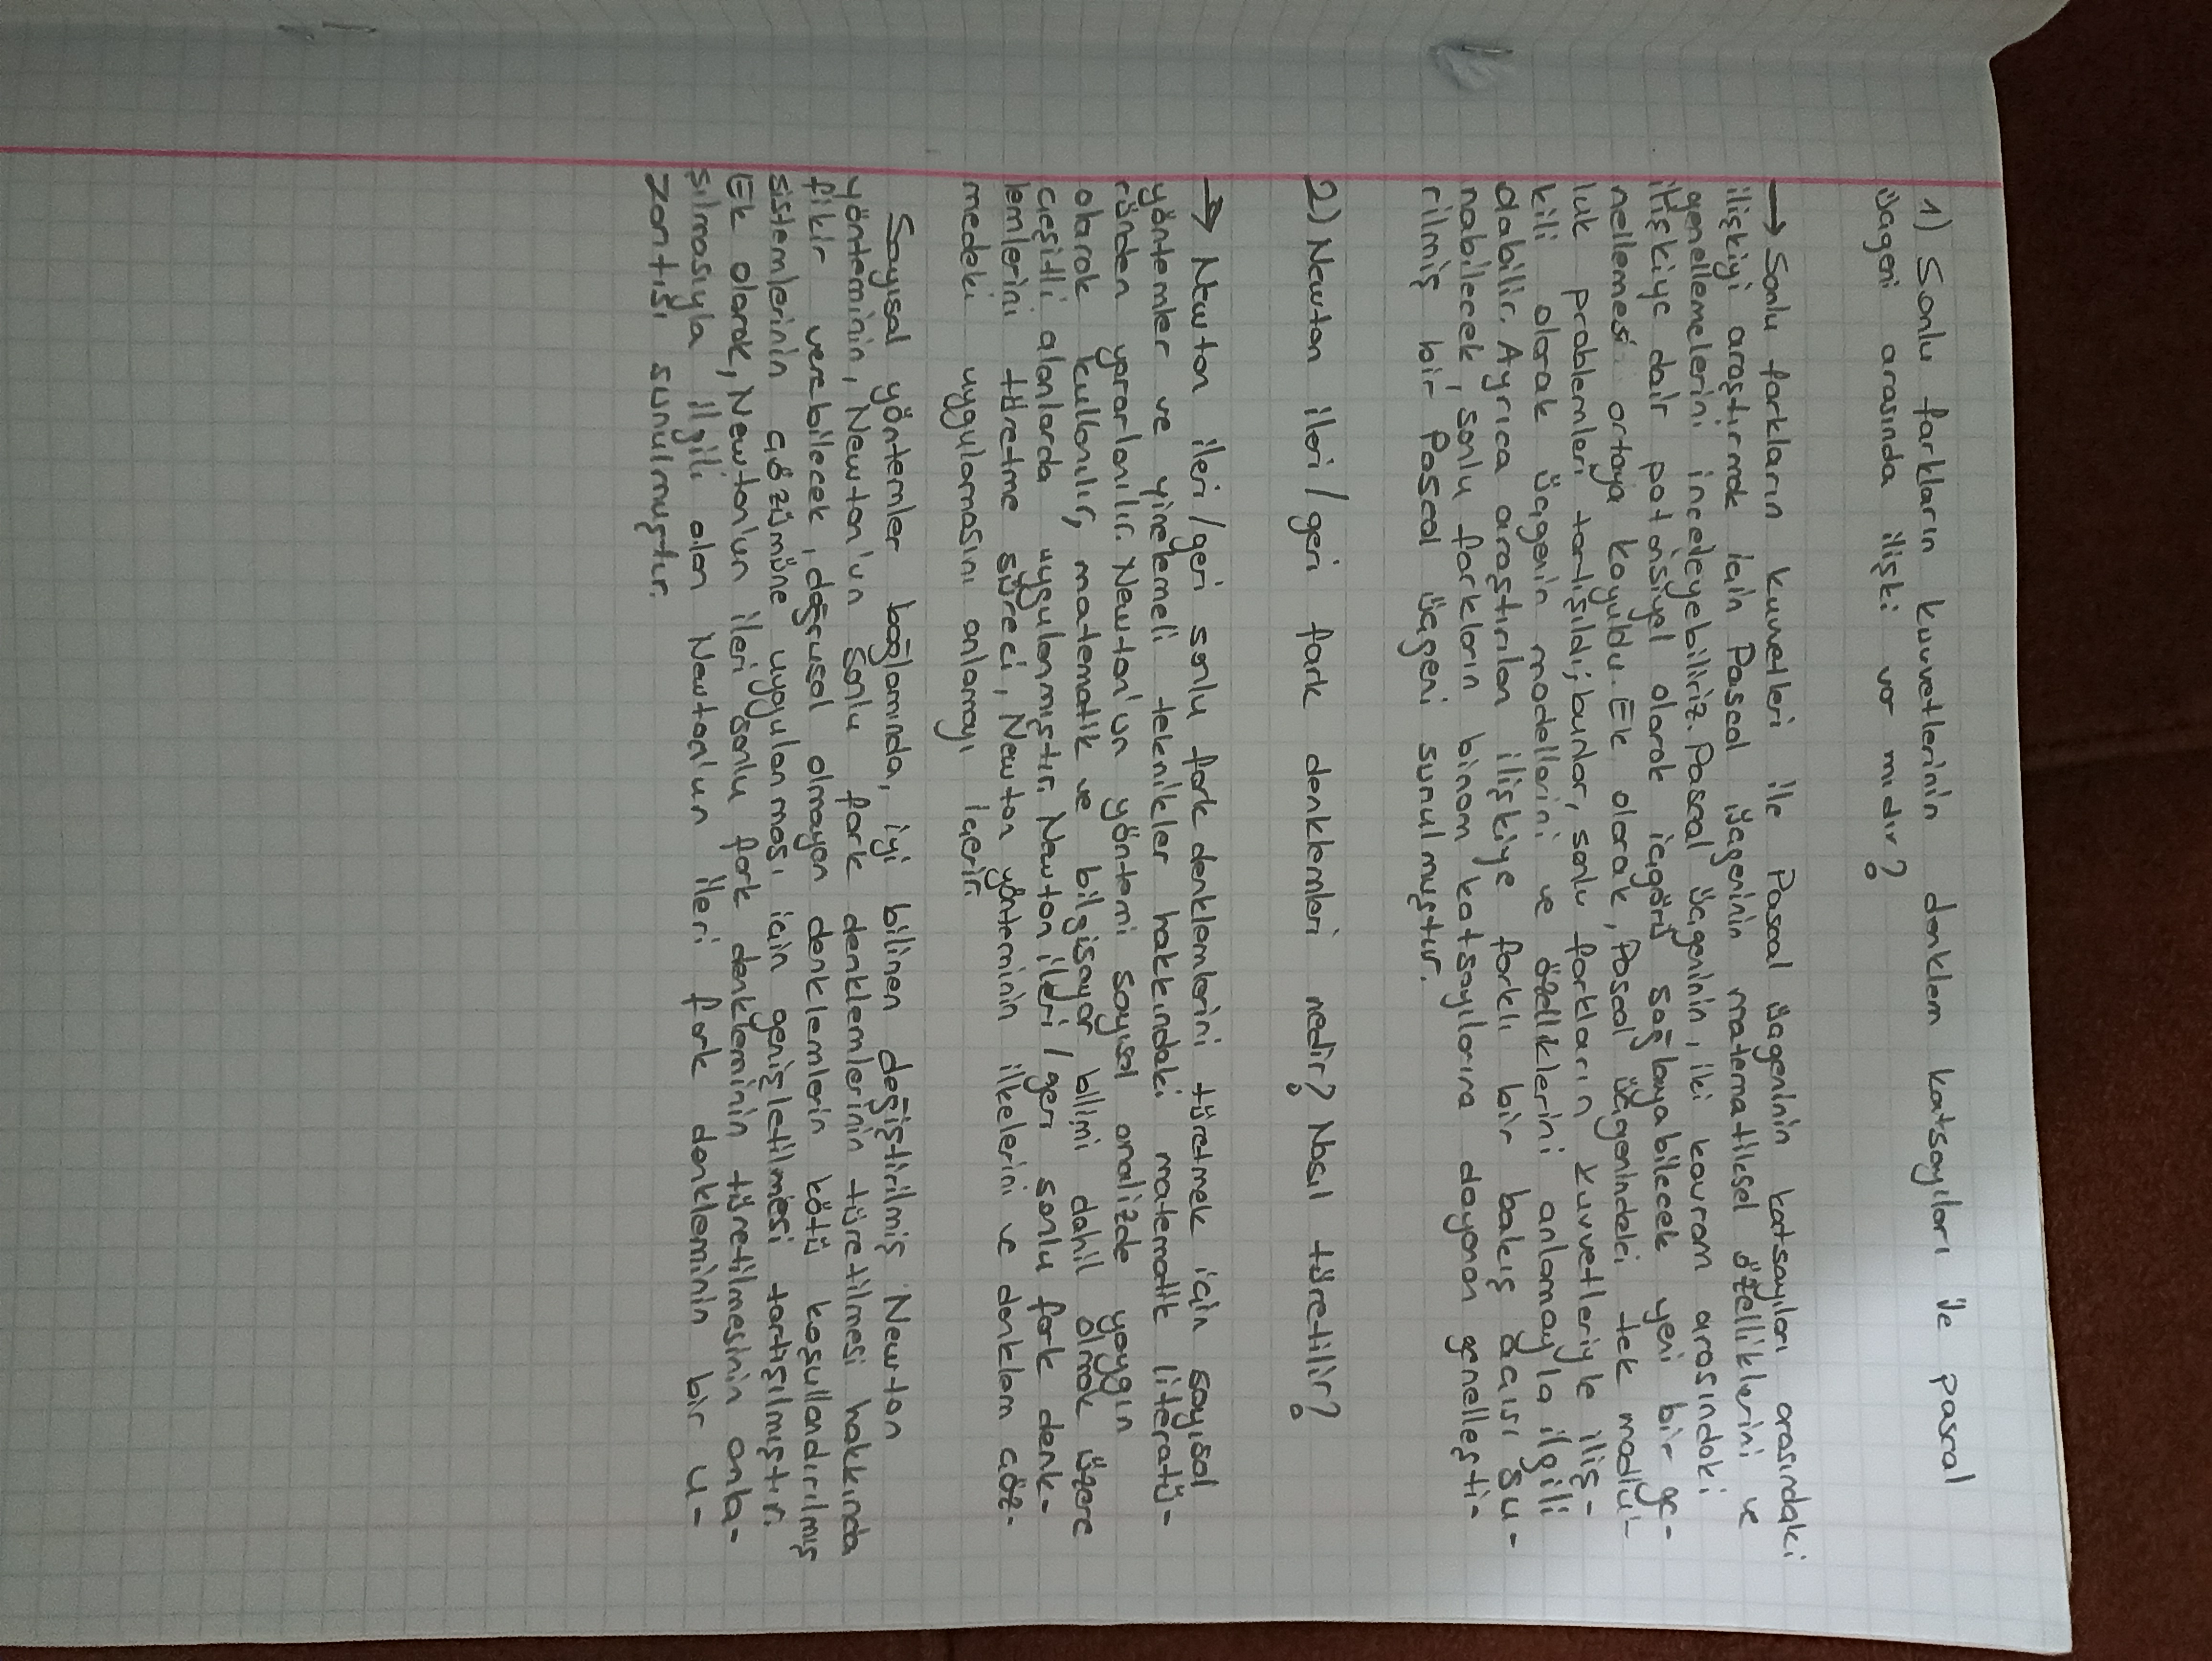 1) Sonlu farkların kuvvetlerinin denklem katsayıları ile pascal
üçgeni arasında ilişki var mıdır?
→ Sonlu farkların kuvvetleri ile Pascal üçgeninin katsayıları arasındaki
ilişkiyi araştırmak için Pascal üçgeninin matematiksel özelliklerini ve
genellemelerini inceleyebiliriz. Pascal üçgeninin, iki kavram arasındaki
ilişkiye dair potansiyel olarak içgörü sağlayabilecek yeni bir ge-
nellemesi ortaya koyuldu. Ek olarak, Pascal üçgenindeki tek modül-
lük problemleri tartışıldı; bunlar, sonlu farkların kuvvetleriyle iliş-
kili olarak üçgenin modellerini ve özelliklerini anlamayla ilgili
olabilir. Ayrıca araştırılan ilişkiye farklı bir bakış açısı su-
nabilecek, sonlu farkların binom katsayılarına dayanan genelleşti-
rilmiş bir Pascal üçgeni sunulmuştur.
2) Newton ileri/geri fark denklemleri nedir? Nasıl türetilir?
→ Newton ileri/geri sonlu fark denklemlerini türetmek için sayısal
yöntemler ve yinelemeli teknikler hakkındaki matematik literatü-
ründen yararlanılır. Newton'un yöntemi sayısal analizde yaygın
olarak kullanılır, matematik ve bilgisayar bilimi dahil olmak üzere
çeşitli alanlarda uygulanmıştır. Newton ileri/geri sonlu fark denk-
lemlerini türetme süreci, Newton yönteminin ilkelerini ve denklem çöz-
medeki uygulamasını anlamayı içerir.
Sayısal yöntemler bağlamında, iyi bilinen değiştirilmiş Newton
yönteminin, Newton'un sonlu fark denklemlerinin türetilmesi hakkında
fikir verebilecek, doğrusal olmayan denklemlerin kötü koşullandırılmış
sistemlerinin çözümüne uygulanması için genişletilmesi tartışılmıştır.
Ek olarak, Newton'un ileri sonlu fark denkleminin türetilmesinin anla-
şılmasıyla ilgili olan Newton'un ileri fark denkleminin bir u-
zantısı sunulmuştur.